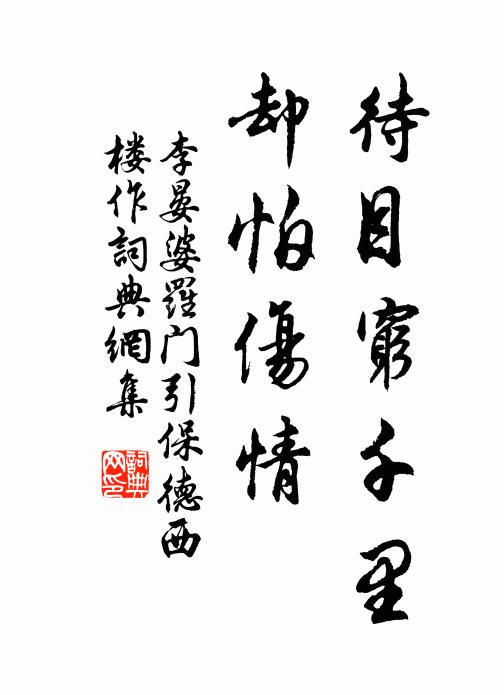 待目窮千里
却怕傷情
李晏婆羅门引保德西
楼作詞典網集
詞典
网印